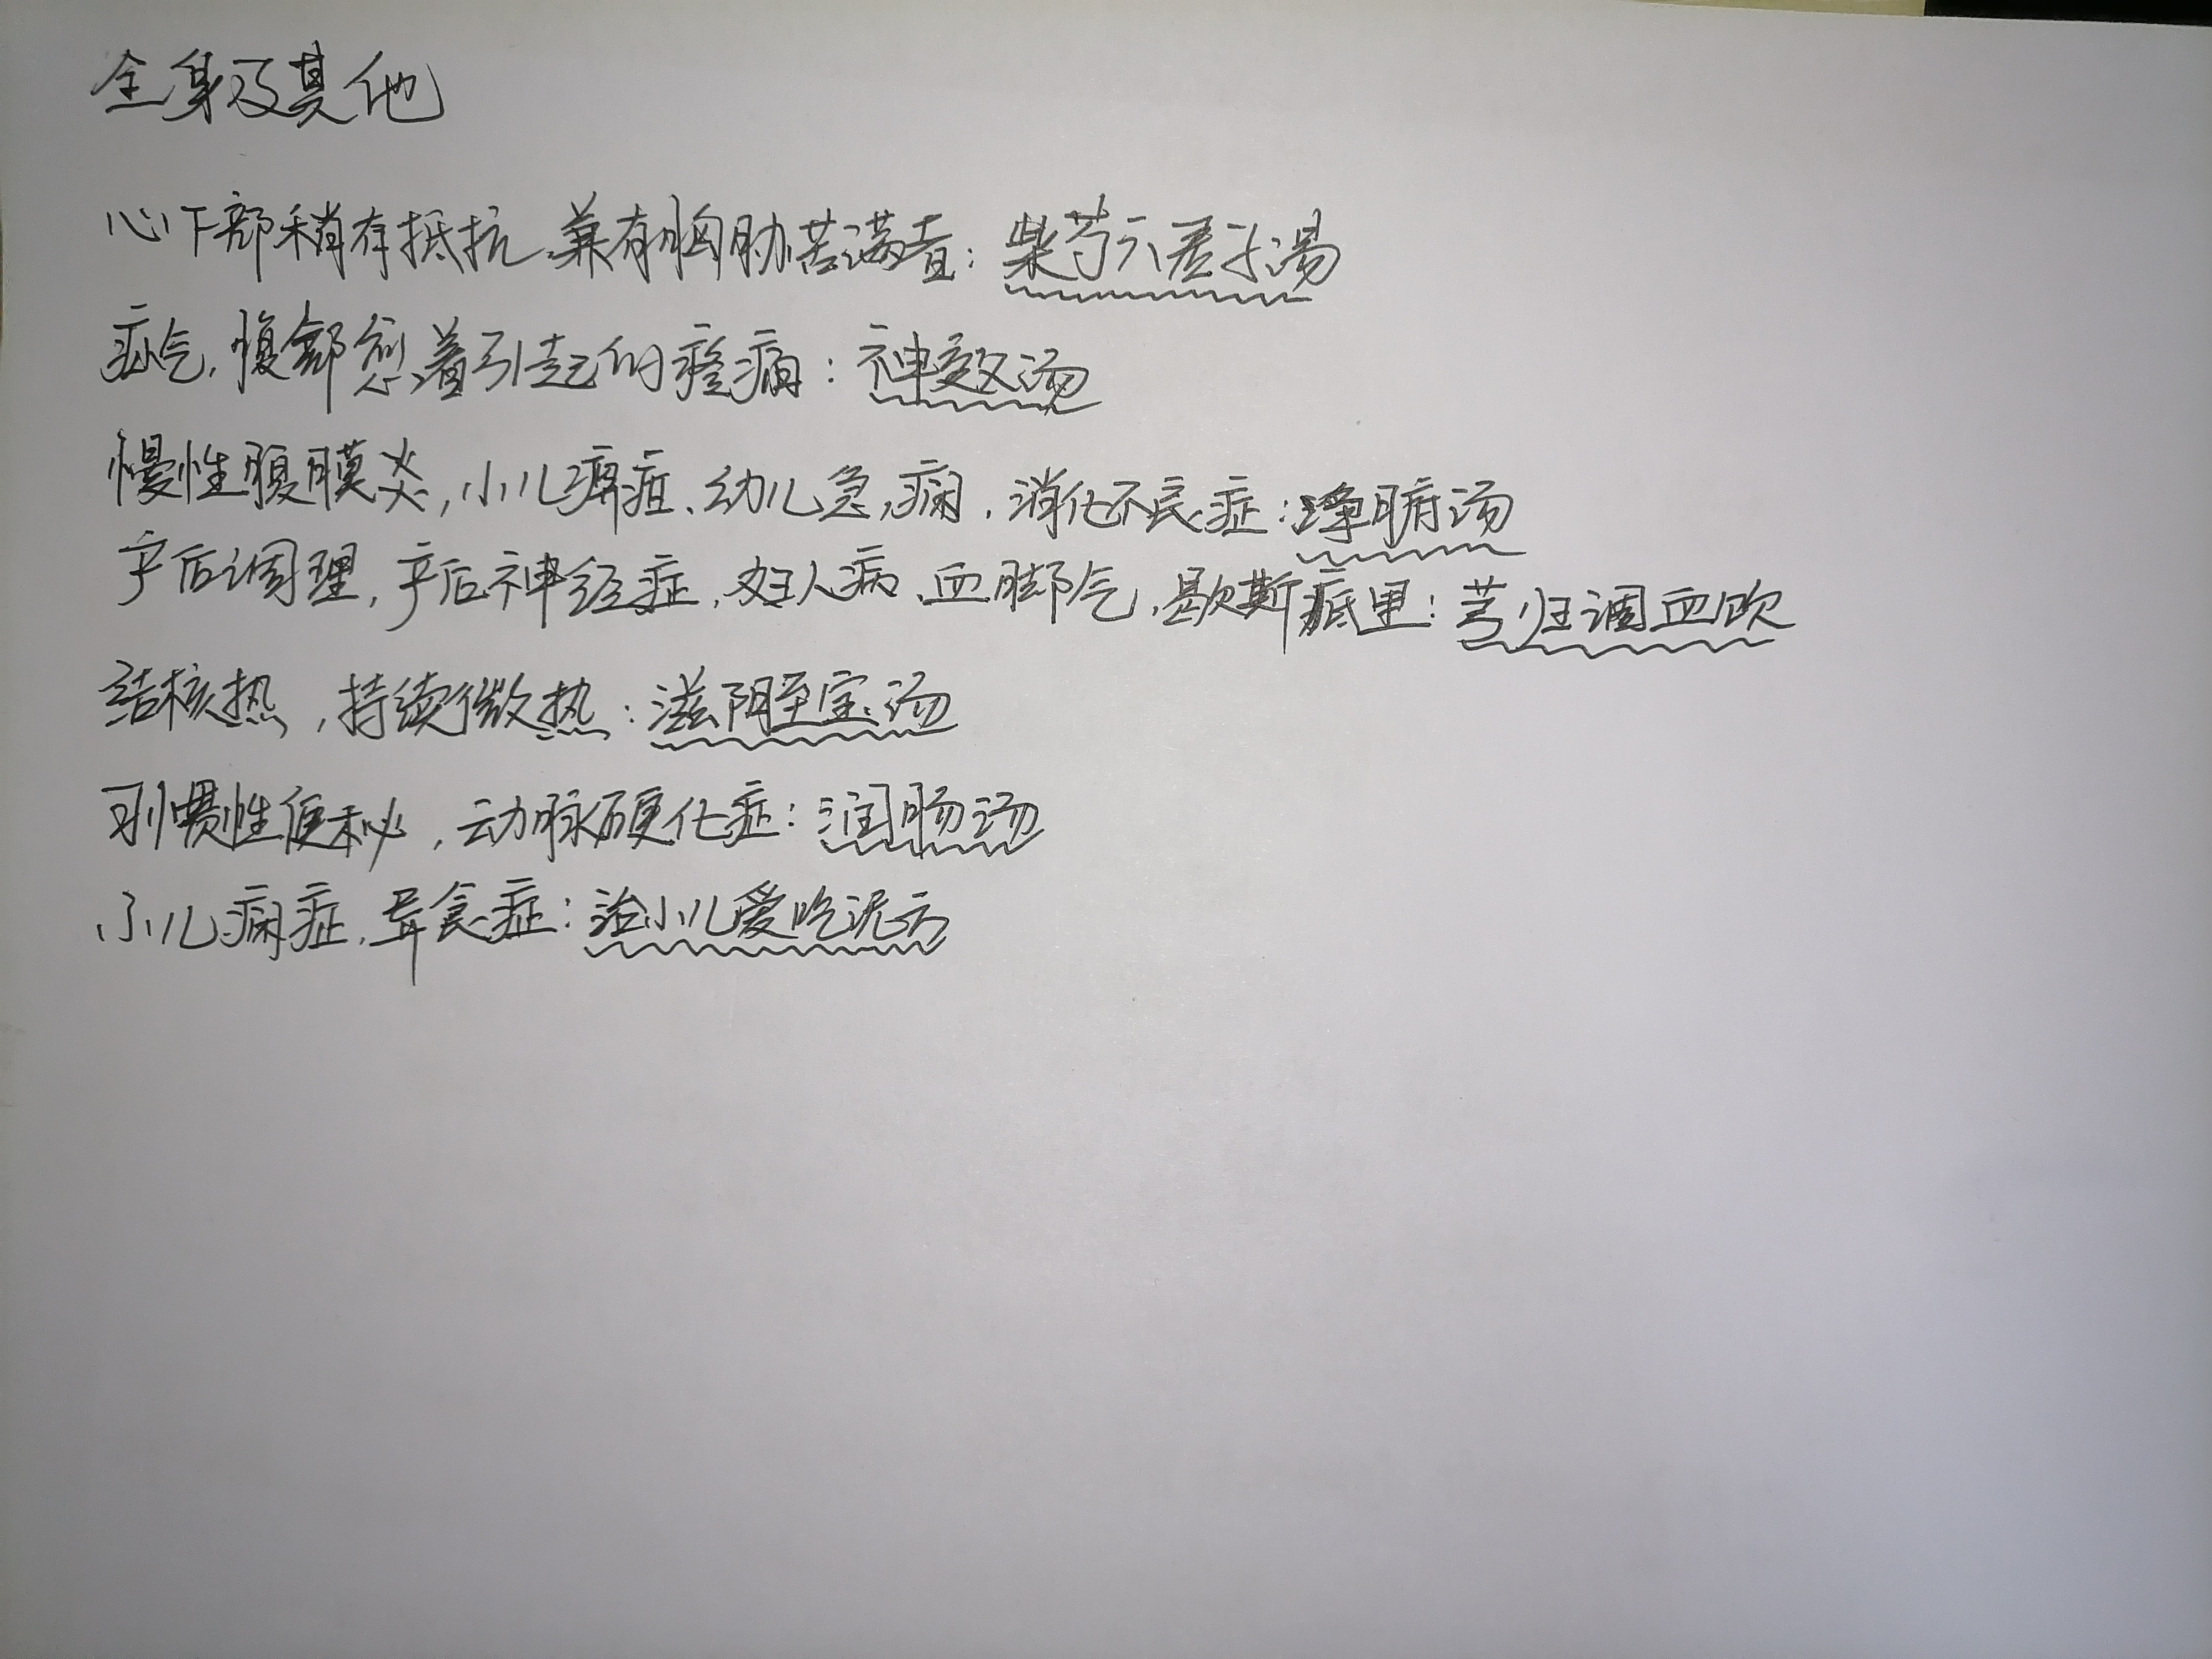 全身及其他
心下部稍有抵抗、兼有胸胁苦满者：柴芍六君子汤
疝气，腹部愈着引起的疼痛：神效汤
慢性腹膜炎，小儿痹疳、幼儿急痫，消化不良症：净腑汤
产后调理，产后神经症，妇人病、血脚气，歇斯底里：芎归调血饮
结核热，持续微热：滋阴至宝汤
习惯性便秘，动脉硬化症：润肠汤
小儿疳症，异食症：治小儿爱吃泥方